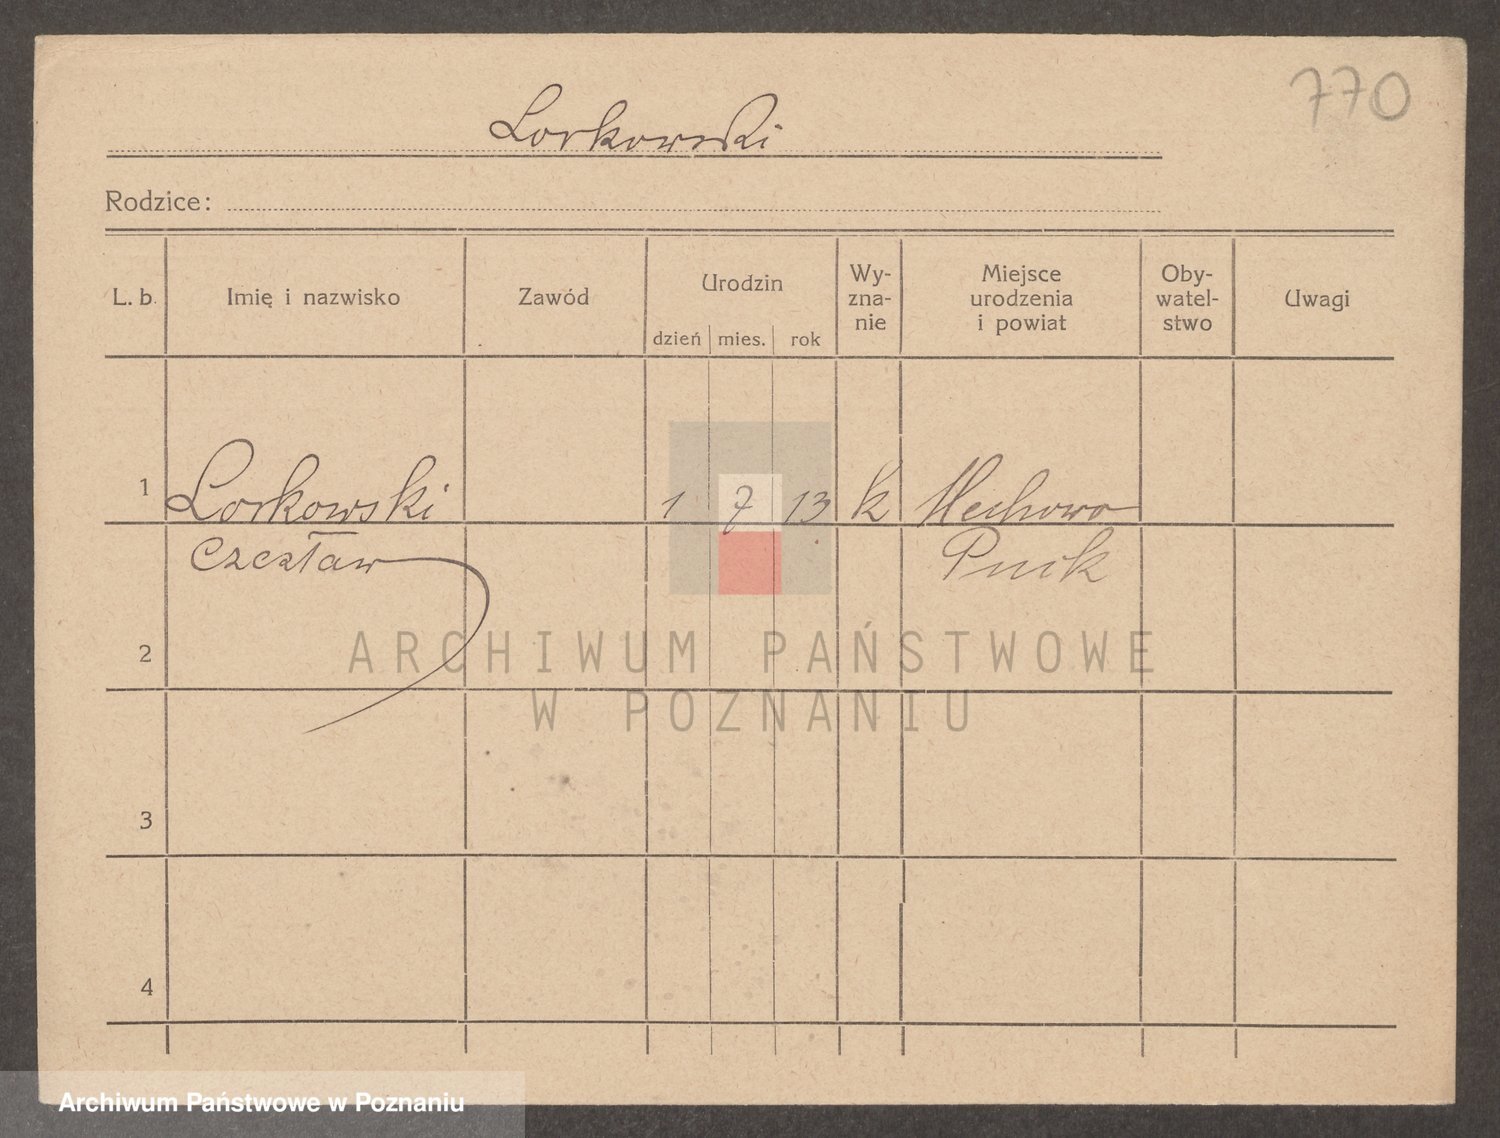 770
Lorkowski
Rodzice:
L. b. Imię i nazwisko Zawód Urodzin Wy-zna-nie Miejsce urodzenia i powiat Oby-watel-stwo Uwagi
dzień mies. rok
1 Lorkowski 1 7 13 k Mechowo
Czesław Pnik
2
ARCHIWUM PAŃSTWOWE
W POZNANIU
3
4
Archiwum Państwowe w Poznaniu